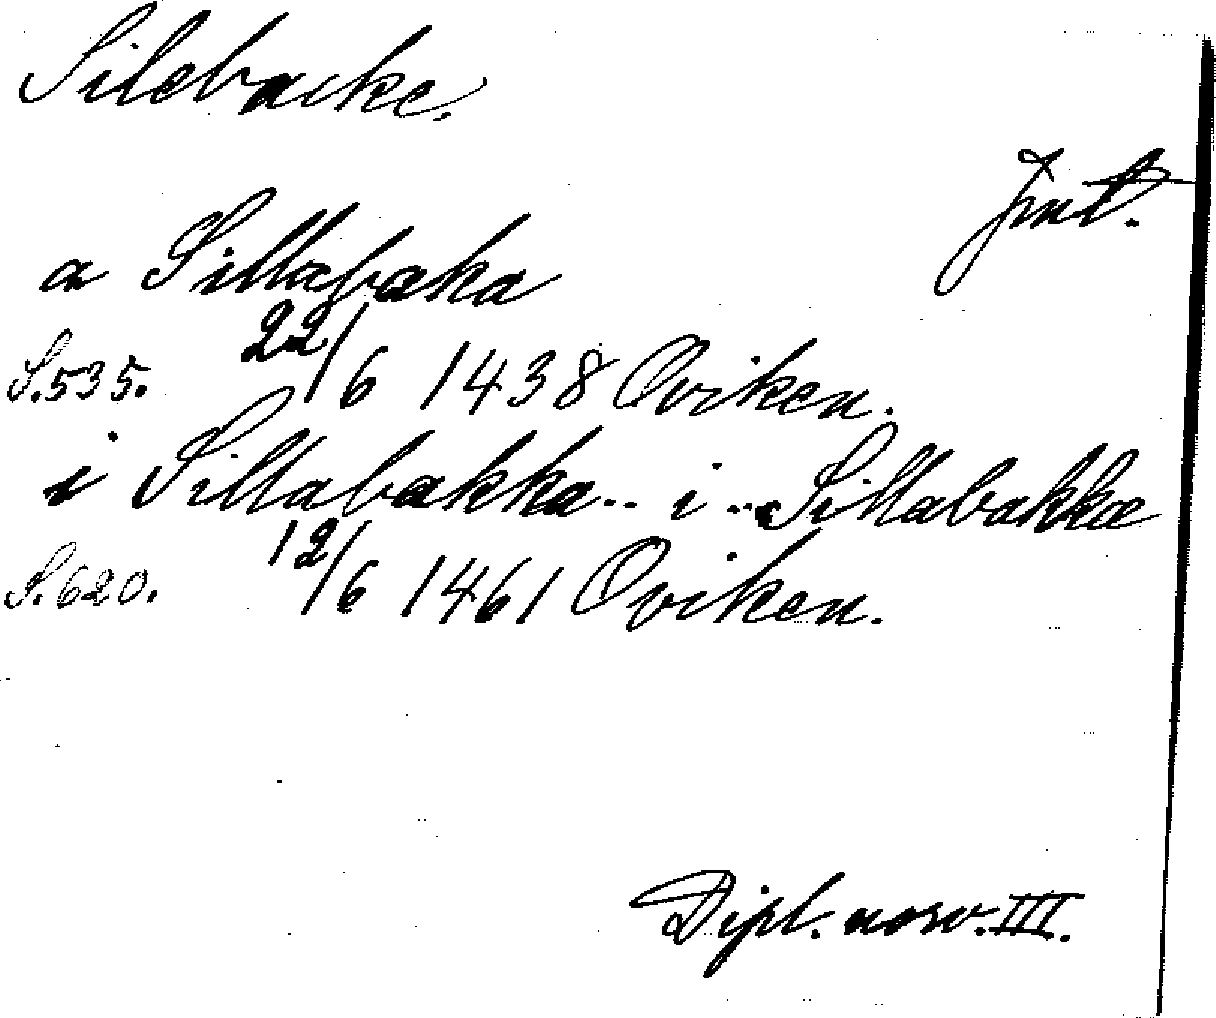 Silebacke.
Jmt.
a Sillabaka
S. 535. 22/6 1438 Oviken.
i Sillabakka.. i .. Sillabakkæ
S. 620. 12/6 1461 Oviken.
Dipl. norv. III.